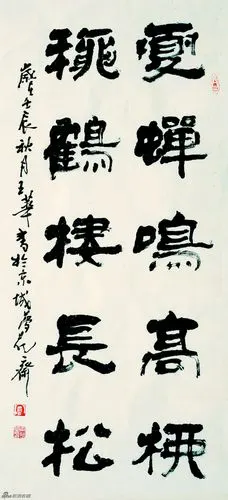 夏蟬鳴高
穐鶴棲長松
歲在壬辰秋月王華書於京城夢花齋